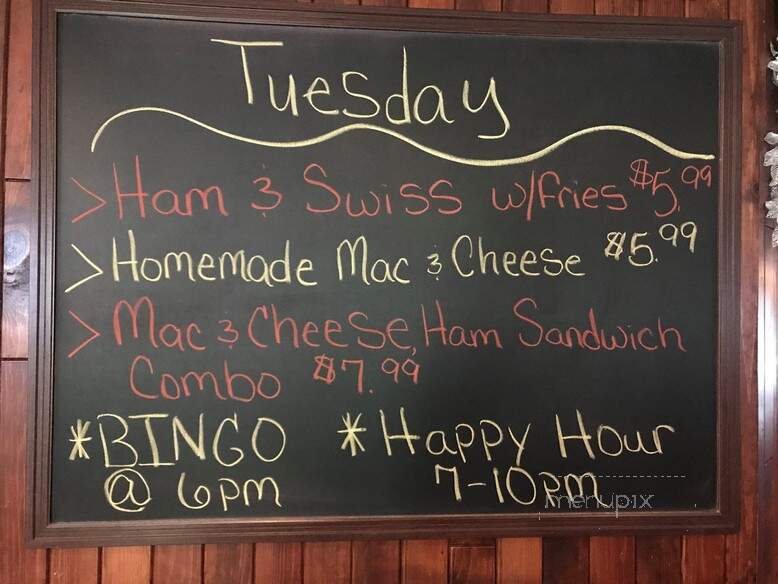 Tuesday
> Ham & Swiss w/fries $5.99
> Homemade Mac & Cheese $5.99
> Mac & Cheese, Ham Sandwich
Combo $7.99
*BINGO *Happy Hour
@ 6pm 7-10pm
menupix